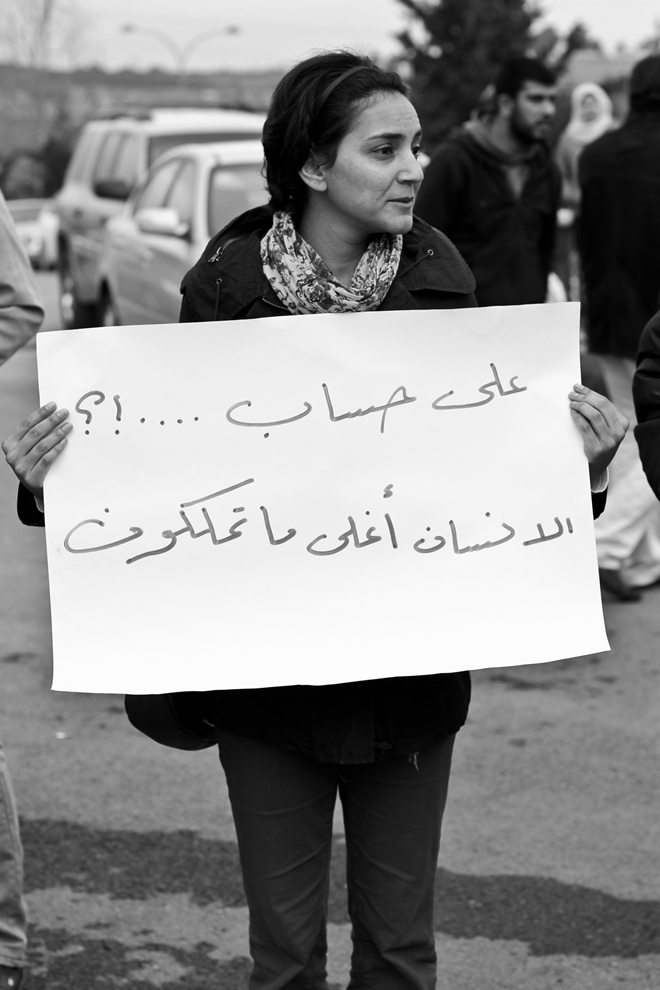 على حساب ....!؟
الانسان أغلى ما تملكون